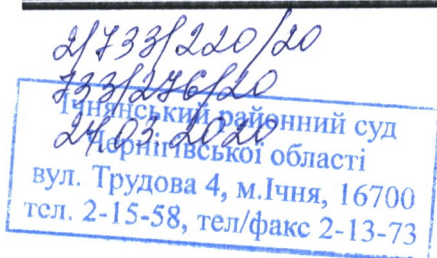 2/733/220/20
733/276/20
24.03.2020
Ічнянський районний суд
Чернігівської області
вул. Трудова 4, м.Ічня, 16700
тел. 2-15-58, тел/факс 2-13-73